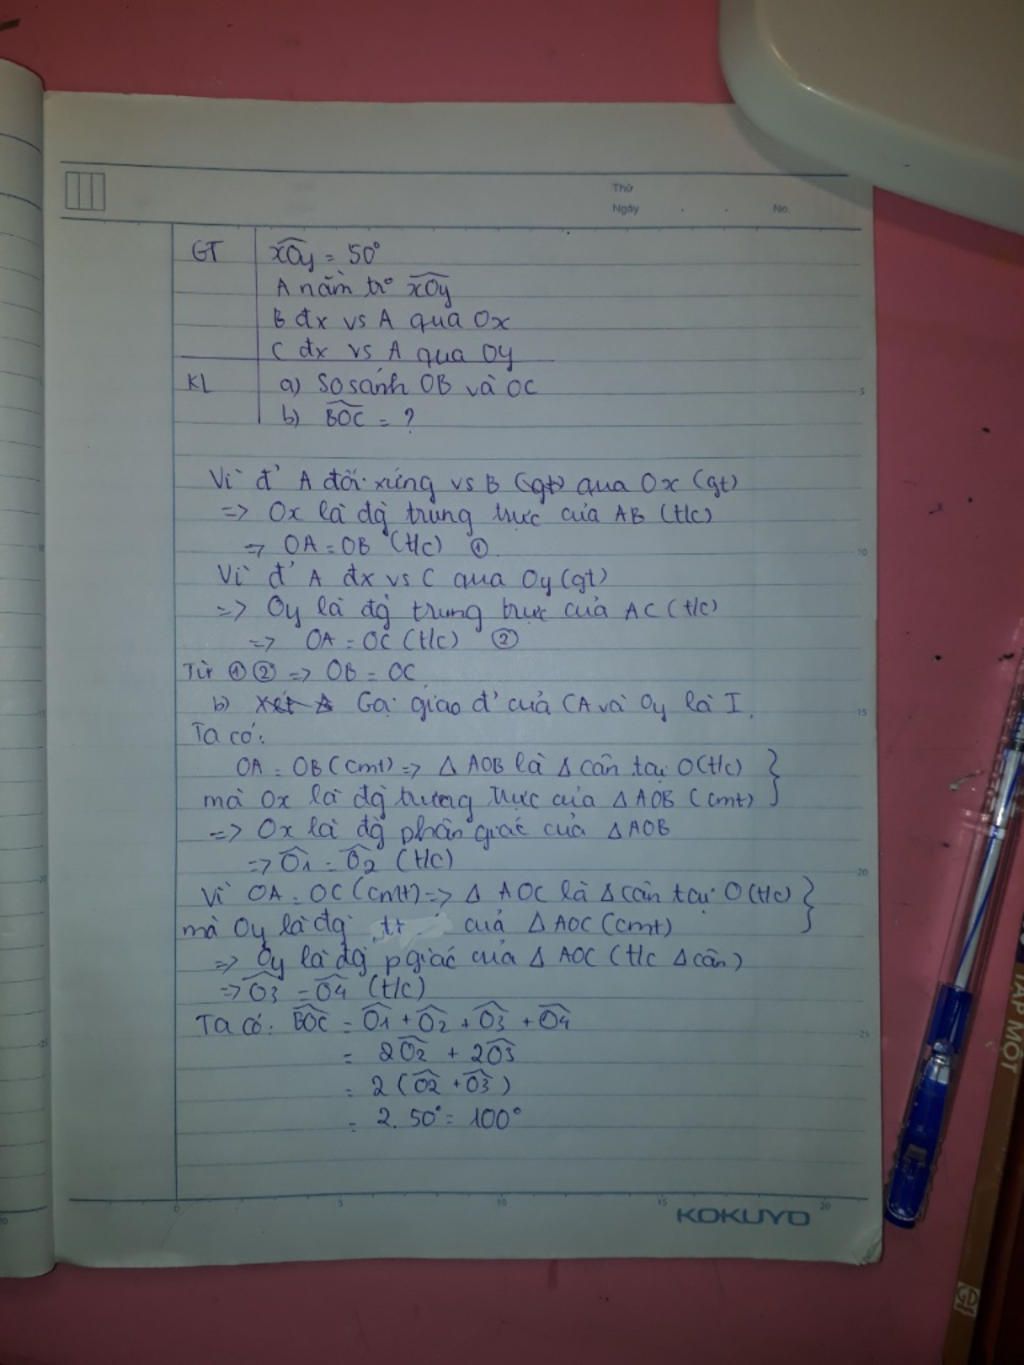 Thứ
Ngày . . No.
GT xOy = 50°
A nằm tr° xOy
B đx vs A qua Ox
C đx vs A qua Oy
KL a) So sánh OB và OC
b) BOC = ?
Vì đ' A đối xứng vs B (gt) qua Ox (gt)
=> Ox là đg trung trực của AB (t/c)
=> OA = OB (t/c) ①
Vì đ' A đx vs C qua Oy (gt)
=> Oy là đg trung trực của AC (t/c)
=> OA = OC (t/c) ②
Từ ①② => OB = OC
b) Xét Δ Gọi giao đ' của CA và Oy là I.
Ta có:
OA = OB (cmt) => Δ AOB là Δ cân tại O (t/c) }
mà Ox là đg trương trực của Δ AOB (cmt)
=> Ox là đg phân giác của Δ AOB
=> O1 = O2 (t/c)
Vì OA = OC (cmt) => Δ AOC là Δ cân tại O (t/c) }
mà Oy là đg tt của Δ AOC (cmt)
=> Oy là đg pgiác của Δ AOC (t/c Δ cân)
=> O3 = O4 (t/c)
Ta có: BOC = O1 + O2 + O3 + O4
= 2O2 + 2O3
= 2 (O2 + O3)
= 2. 50° = 100°
0 5 10 15 20
KOKUYO
TẬP MỘT
GD